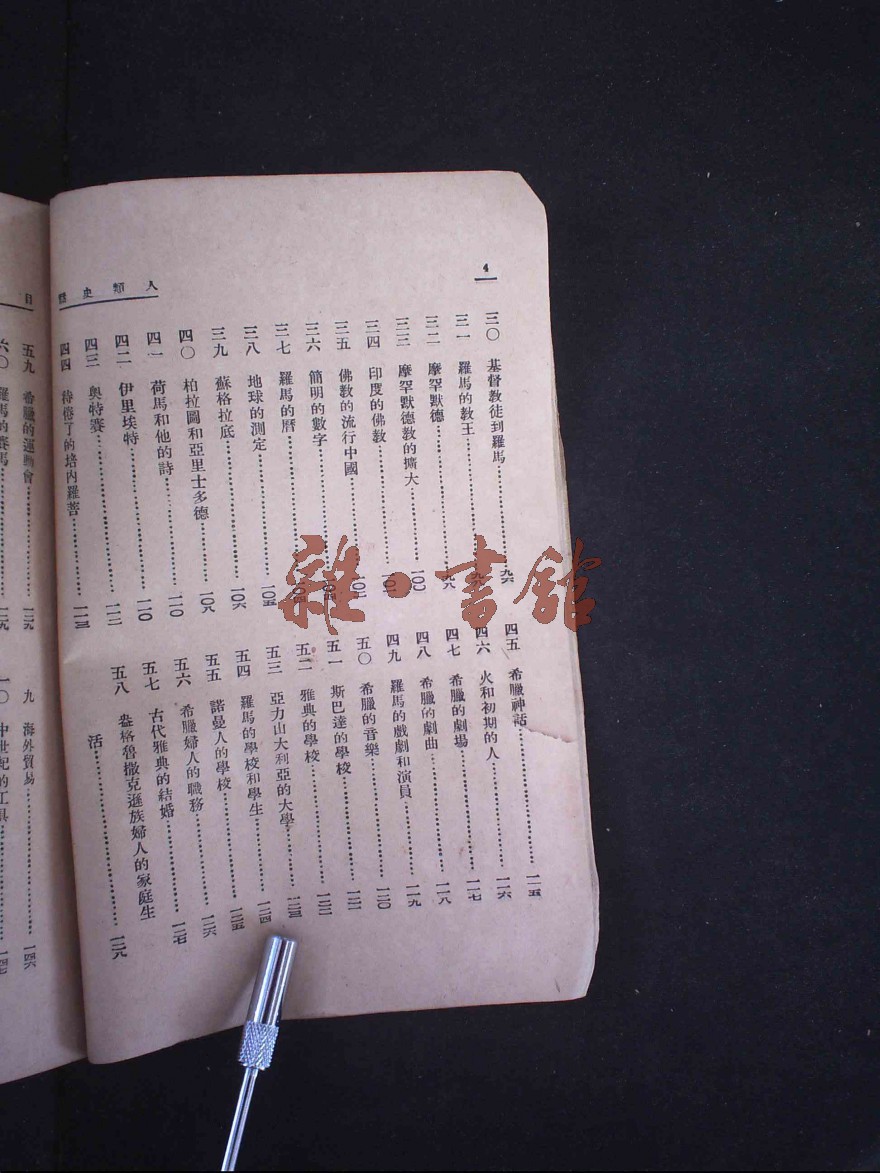 4
人類史話
三〇　基督教徒到羅馬………九六
三一　羅馬的教王………九八
三二　摩罕默德………九八
三三　摩罕默德教的擴大………一〇〇
三四　印度的佛教
三五　佛教的流行中國
三六　簡明的數字
三七　羅馬的曆
三八　地球的測定………一〇五
三九　蘇格拉底………一〇六
四〇　柏拉圖和亞里士多德………一〇八
四一　荷馬和他的詩………一一〇
四二　伊里埃特………一一〇
四三　奧特賽………一一二
四四　待倦了的培內羅菩………一一三
四五　希臘神話………一一五
四六　火和初期的人………一一六
四七　希臘的劇場………一一七
四八　希臘的劇曲………一一八
四九　羅馬的戲劇和演員………一一九
五〇　希臘的音樂………一二〇
五一　斯巴達的學校………一二一
五二　雅典的學校………一二二
五三　亞力山大利亞的大學………一二三
五四　羅馬的學校和學生………一二四
五五　諾曼人的學校………一二五
五六　希臘婦人的職務………一二六
五七　古代雅典的結婚………一二七
五八　盎格魯撒克遜族婦人的家庭生
活………一二八
目
五九　希臘的運動會………一二九
六〇　羅馬的賽馬………一二九
九　海外貿易………一四六
一〇　中世紀的工具………一四七
雜·書館